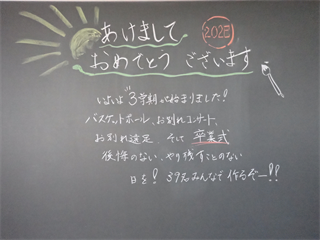 あけまして
おめでとう ございます
いよいよ 3学期が始まりました!
バスケットボール、お別れコンサート、
お別れ遠足、そして 卒業式
後悔のない、やり残すことのない
日を! 39名みんなで 作るぞー!!